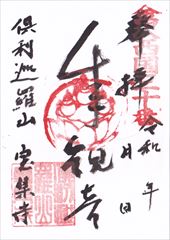 奉拝
令和 年 月 日
千手観音
倶利迦羅山
宝集寺